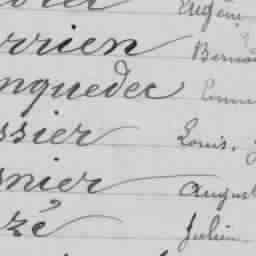 Eugène
rrien Bernard
nquedec Emma
ssier Louis, J
snier August
zé Julien